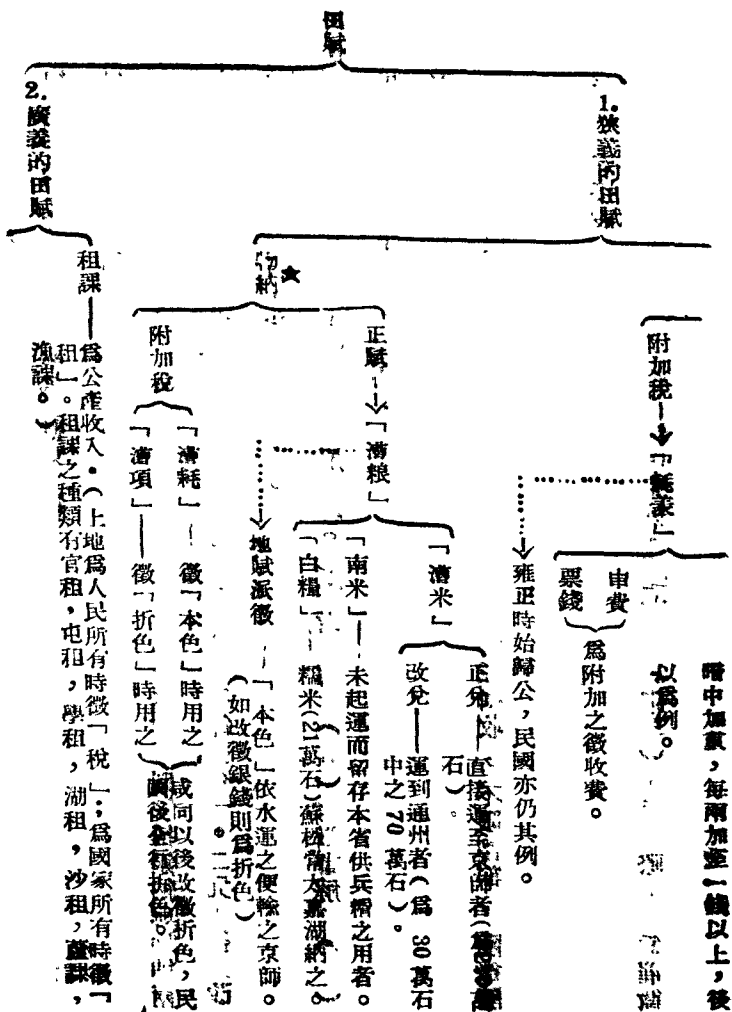 田賦
1. 狹義的田賦
暗中加重,每兩加至一錢以上,後
以爲例。
附加稅→「耗羨」
申費
票錢
爲附加之徵收費。
雍正時始歸公,民國亦仍其例。
★
正賦→「漕粮」
「漕米」
正兌——直接運至京師者(
石)。
改兌——運到通州者(爲 30 萬石
中之 70 萬石)。
「南米」——未起運而留存本省供兵糈之用者。
「白糧」——糯米(21萬石)蘇松常太嘉湖納之。
地賦派徵——「本色」依水運之便輸之京師。
(如改徵銀錢則爲折色)
附加稅
「漕耗」——徵「本色」時用之
「漕項」——徵「折色」時用之
咸同以後改徵折色,民
國後全行折色。
2. 廣義的田賦
租課——爲公產收入。(土地爲人民所有時徵「稅」;爲國家所有時徵「
租」。租課之種類有官租,屯租,學租,湖租,沙租,蘆課,
漁課。)